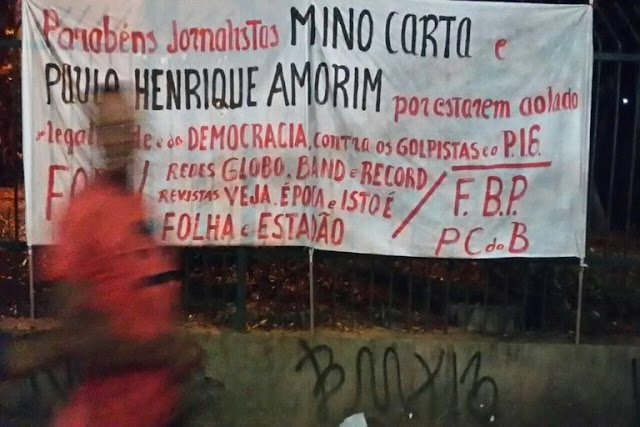 Parabéns Jornalistas MINO CARTA e
PAULO HENRIQUE AMORIM por estarem ao lado
da DEMOCRACIA, contra os GOLPISTAS e o P.I.G.
REDES GLOBO, BAND e RECORD
REVISTAS VEJA, ÉPOCA e ISTO É
FOLHA e ESTADÃO
F.B.P.
PC do B